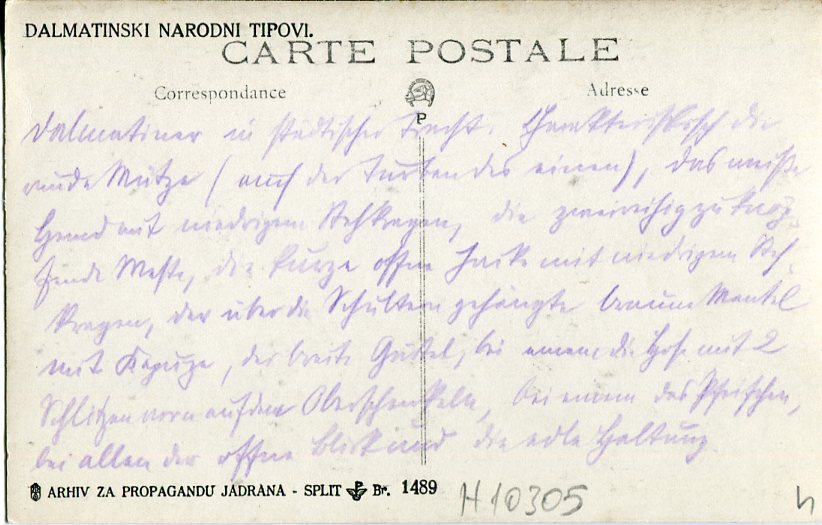 DALMATINSKI NARODNI TIPOVI.
CARTE POSTALE
Correspondance
Adresse
P
Dalmatiner in städtischer Tracht. Charakteristisch die
runde Mütze (auch der Turban des einen), das weiße
Hemd mit niedrigem Stehkragen, die zweireihig zu knöp-
fende Weste, die kurze offne Jacke mit niedrigem Steh-
kragen, der über die Schultern gehängte braune Mantel
mit Kapuze, der breite Gürtel, bei einem die Hose mit 2
Schlitzen vorn auf den Oberschenkeln, bei einem das Pfeifchen,
bei allen der offne Blick und die edle Haltung.
ARHIV ZA PROPAGANDU JADRANA - SPLIT Br. 1489
H 10305